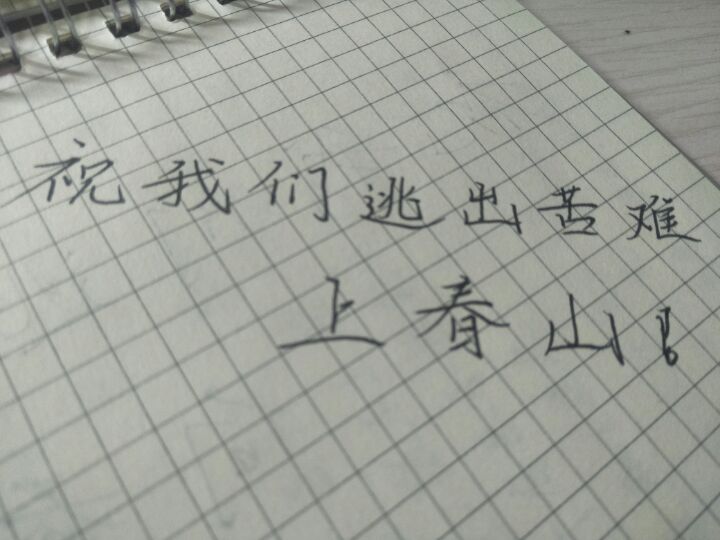 祝我们逃出苦难
上春山！